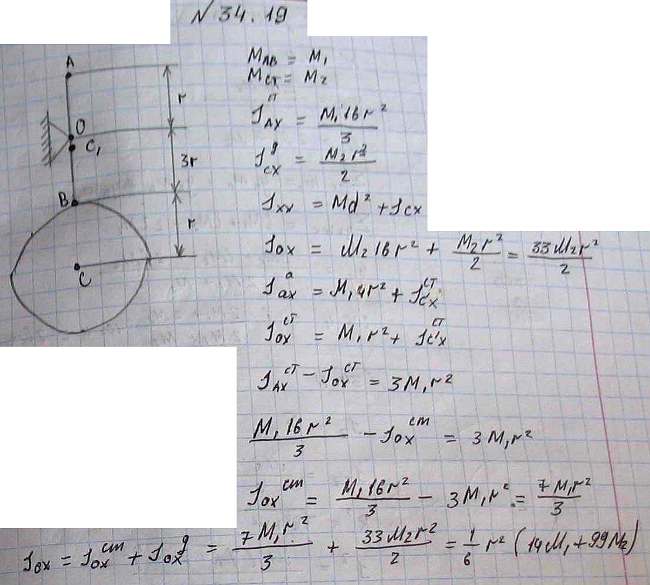 N 34.19
M_AB = M₁
M_CT = M₂
J_AX^CT = M₁16r² / 3
J_CX^g = M₂r² / 2
J_XX = Md² + J_CX
J_OX = M₂16r² + M₂r² / 2 = 33M₂r² / 2
J_ax^a = M₁4r² + J_C'X^CT
J_OX^CT = M₁r² + J_C'X^CT
J_AX^CT - J_OX^CT = 3M₁r²
M₁16r² / 3 - J_OX^cm = 3M₁r²
J_OX^cm = M₁16r² / 3 - 3M₁r² = 7M₁r² / 3
J_OX = J_OX^cm + J_OX^g = 7M₁r² / 3 + 33M₂r² / 2 = 1/6 r² (14M₁ + 99M₂)
A
r
O
C₁
3r
B
r
C